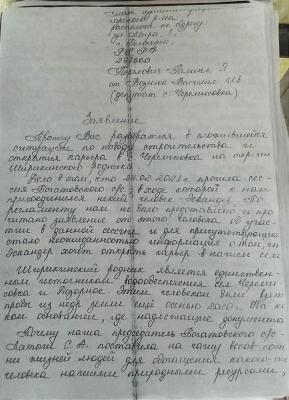 Главе администрации
района
располож. по адресу
ул. Мира, 1
г. Белогорск,
РК РФ
297600
Галине Я
от Возняк Василия И.В.
(депутат с. Черемисовка)
Заявление
Прошу Вас разобраться в сложившейся
ситуации по поводу строительства и
открытия карьера в с. Черемисовка на
родника
Дело в том, что 24.02.2021г. прошла сес-
сия Богатовского с/с в ходе которой к нам
присоединился некий человек Эскандер. По
регламенту нам не было представлено и про-
читано заявление от этого человека об учас-
тии в данной сессии и для присутствующих
стало неожиданностью информация о том, что
Эскандер хочет открыть карьер в нашем селе
родник является единствен-
ным источником водоснабжения сел Череми-
совка и Поворное. Этим человеком были взяты
пробы из недр земли ещё осенью 2020г. На ка-
ком основании, где надлежащие документы
Почему наша председатель Богатовского с/с
С.А. поставила на чашу весов сот-
ни жизней людей для обогащения какого-то
человека нашими природными ресурсами,